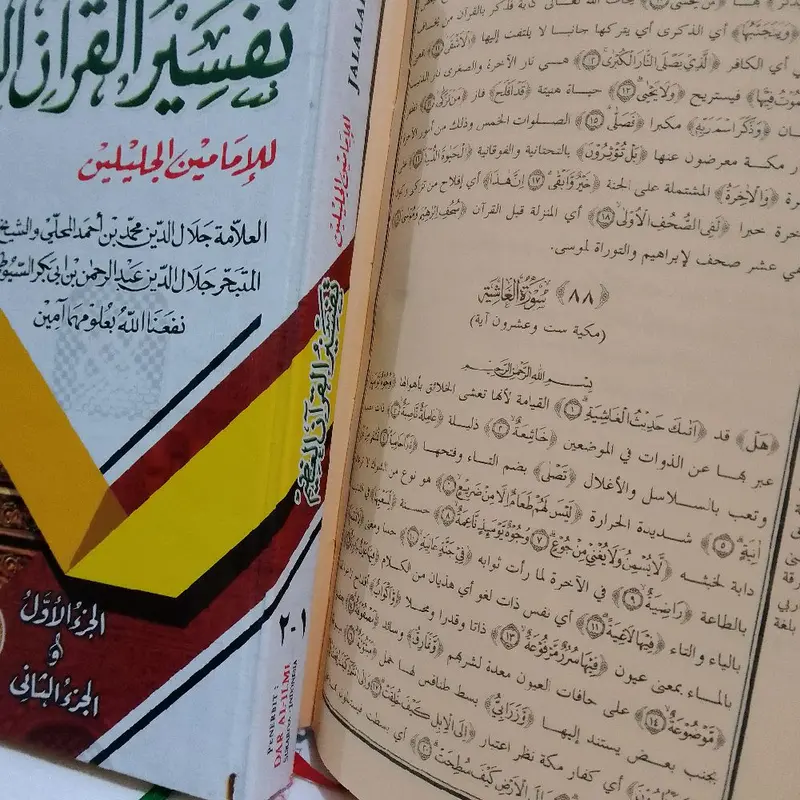 تفسير القرآن
للإمامين الجليلين
العلامة جلال الدين محمد بن أحمد المحلي والشيخ
المتبحر جلال الدين عبد الرحمن بن أبي بكر السيوطي
نفعنا الله بعلومهما آمين
الجزء الأول
و
الجزء الثاني
JALALAI
للإمامين الجليلين
تفسير القرآن العظيم
٢-١
PENERBIT :
DAR AL-ILMI
SURABAYA - INDONESIA
﴿وَيَتَجَنَّبُهَا﴾ أي الذكرى أي يتركها جانبا لا يلتفت إليها ﴿الْأَشْقَى﴾
أي الكافر ﴿الَّذِي يَصْلَى النَّارَ الْكُبْرَى ١٢﴾ هي نار الآخرة والصغرى نار
يموت فيها﴾ فيستريح ﴿وَلَا يَحْيَى ١٣﴾ حياة هنيئة ﴿قَدْ أَفْلَحَ﴾ فاز ﴿مَنْ تَزَكَّى
﴿وَذَكَرَ اسْمَ رَبِّهِ﴾ مكبرا ﴿فَصَلَّى ١٥﴾ الصلوات الخمس وذلك من أمور
مكة معرضون عنها ﴿بَلْ تُؤْثِرُونَ﴾ بالتحتانية والفوقانية ﴿الْحَيَاةَ الدُّنْيَا
﴿وَالْآخِرَةُ﴾ المشتملة على الجنة ﴿خَيْرٌ وَأَبْقَى ١٧ إِنَّ هَذَا﴾ أي إفلاح من تزكى
خيرا ﴿لَفِي الصُّحُفِ الْأُولَى ١٨﴾ أي المنزلة قبل القرآن ﴿صُحُفِ إِبْرَاهِيمَ وَمُوسَى
عشر صحف لإبراهيم والتوراة لموسى.
﴿٨٨﴾ سُورَةُ الْغَاشِيَةِ
(مكية ست وعشرون آية)
بِسْمِ اللهِ الرَّحْمَنِ الرَّحِيمِ
﴿هَلْ﴾ قد ﴿أَتَاكَ حَدِيثُ الْغَاشِيَةِ ١﴾ القيامة لأنها تغشى الخلائق بأهوالها ﴿وُجُوهٌ يَوْمَئِذٍ
عبر بها عن الذوات في الموضعين ﴿خَاشِعَةٌ ٢﴾ ذليلة ﴿عَامِلَةٌ نَاصِبَةٌ ٣﴾ ذات نصب
وتعب بالسلاسل والأغلال ﴿تَصْلَى﴾ بضم التاء وفتحها ﴿نَارًا حَامِيَةً ٤
آنِيَةٍ ٥﴾ شديدة الحرارة ﴿لَيْسَ لَهُمْ طَعَامٌ إِلَّا مِنْ ضَرِيعٍ ٦﴾ هو نوع من الشوك لا
دابة لخبثه ﴿لَا يُسْمِنُ وَلَا يُغْنِي مِنْ جُوعٍ ٧ وُجُوهٌ يَوْمَئِذٍ نَاعِمَةٌ ٨﴾ حسنة ﴿لِسَعْيِهَا﴾ في الدنيا
بالطاعة ﴿رَاضِيَةٌ ٩﴾ في الآخرة لما رأت ثوابه ﴿فِي جَنَّةٍ عَالِيَةٍ ١٠﴾ حسا ومعنى
بالياء والتاء ﴿فِيهَا لَاغِيَةً ١١﴾ أي نفس ذات لغو أي هذيان من الكلام ﴿فِيهَا عَيْنٌ جَارِيَةٌ
بالماء بمعنى عيون ﴿فِيهَا سُرُرٌ مَرْفُوعَةٌ ١٣﴾ ذاتا وقدرا ومحلا ﴿وَأَكْوَابٌ﴾ أقداح
﴿مَوْضُوعَةٌ ١٤﴾ على حافات العيون معدة لشربهم ﴿وَنَمَارِقُ﴾ وسائد ﴿مَصْفُوفَةٌ
بجنب بعض يستند إليها ﴿وَزَرَابِيُّ﴾ بسط طنافس لها خمل ﴿مَبْثُوثَةٌ
أي كفار مكة نظر اعتبار ﴿إِلَى الْإِبِلِ كَيْفَ خُلِقَتْ ١٧
الْأَرْضِ كَيْفَ سُطِحَتْ ٢٠﴾ أي بسطت